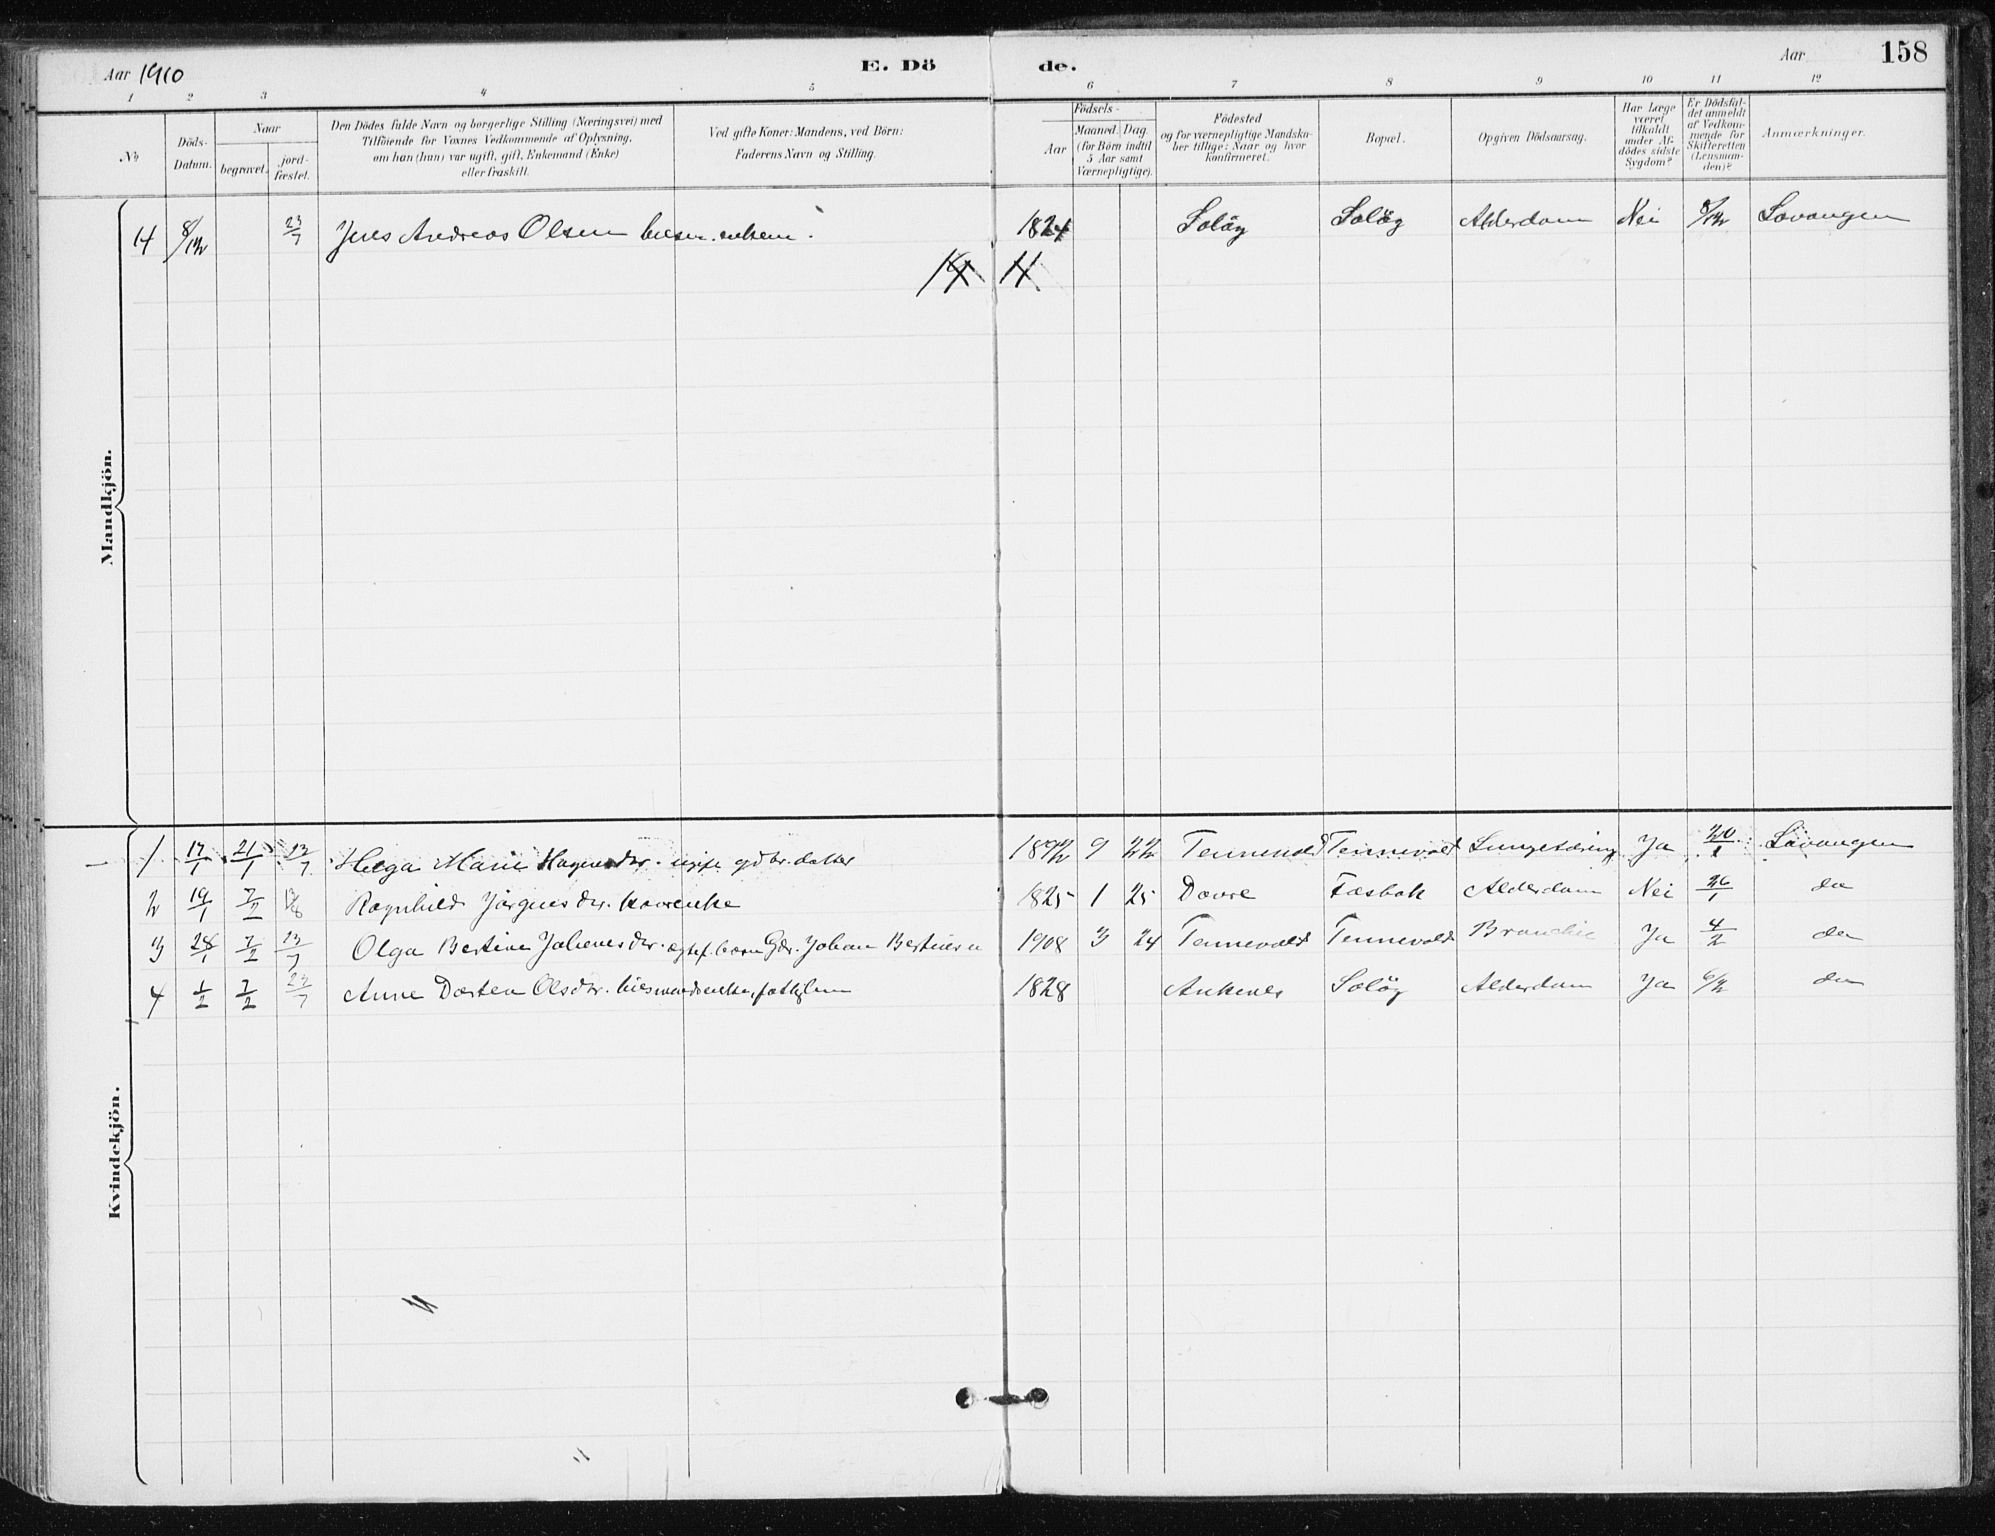 Aar 1910 E. Dö de. Aar 158
1 2 3 4 5 6 7 8 9 10 11 12
No.
Döds-
Datum.
Naar
begravet.
jord-
fæstet.
Den Dödes fulde Navn og borgerlige Stilling (Næringsvei) med
Tilföiende for Voxnes Vedkommende af Oplysning,
om han (hun) var ugift, gift, Enkemand (Enke)
eller fraskilt.
Ved gifte Koner: Mandens, ved Börn:
Faderens Navn og Stilling.
Födsels-
Aar
Maaned. Dag.
(for Börn indtil
5 Aar samt
Værnepligtige).
Födested
og for værnepligtige Mandska-
ber tillige: Naar og hvor
konfirmeret.
Bopæl.
Opgiven Dödsaarsag.
Har Læge
været
tilkaldt
under Af-
dödes sidste
Sygdom?
Er Dödsfal-
det anmeldt
af Vedkom-
mende for
Skifteretten
(Lensman-
den)?
Anmærkninger.
Mandkjön.
14 8/12 23/7 Jens Andreas Olsen 1824 Soløy Soløy Alderdom Nei 8/12 Lavangen
14 14
Kvindekjön.
1 17/1 21/1 23/7 Helga Marie Hagensdtr. ugift gdbr. datter 1892 9 22 Tennevold Tennevold Lungetæring Ja 20/1 Lavangen
2 19/1 7/2 Ragnhild Jørgensdr. 1825 1 25 Dovre Fæsbak Alderdom Nei 26/1 do
3 28/1 7/2 23/7 Olga Bertine Johansdtr. ægtef. barn Gdr. Johan Bertinsen 1908 3 24 Tennevold Tennevold Bronchit Ja 4/2 do
4 1/2 7/2 23/7 Anne Dorten Olsdtr. husmandsenke, fattiglem 1828 Ankenes Soløy Alderdom Ja 6/2 do